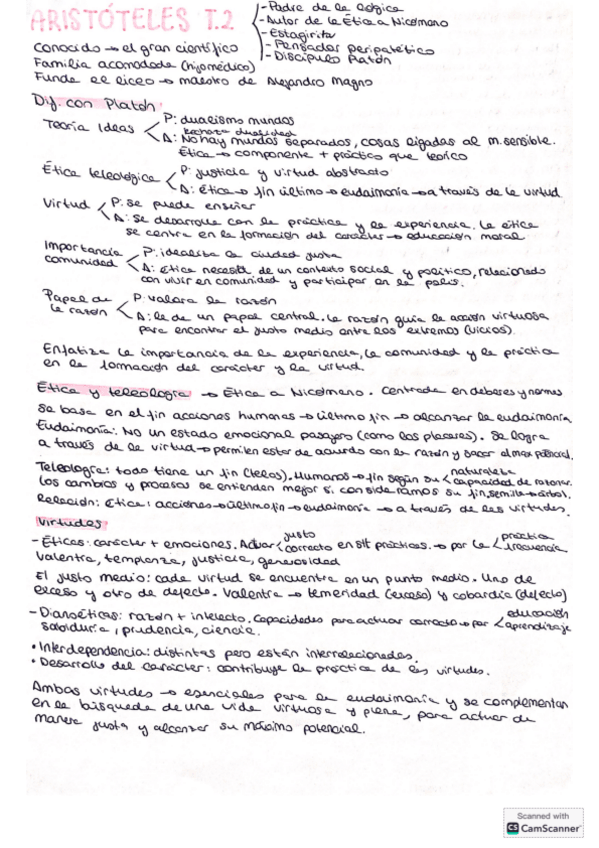 ARISTÓTELES T.2
- Padre de la lógica
- Autor de la Ética a Nicómano
- Estagirita
- Pensador peripatético
- Discípulo Platón
Conocido → el gran científico
Familia acomodada (hijo médico)
Funda el liceo → maestro de Alejandro Magno
Dif. con Platón
Teoría Ideas
P: dualismo mundos
rechaza dualidad
A: No hay mundos separados, cosas ligadas al m. sensible.
Ética → componente + práctico que teórico
Ética teleológica
P: justicia y virtud abstracto
A: Ética → fin último → eudaimonía → a través de la virtud
Virtud
P: se puede enseñar
A: se desarrolla con la práctica y la experiencia. La ética
se centra en la formación del carácter → educación moral
Importancia comunidad
P: idealista la ciudad justa
A: Ética necesita de un contexto social y político, relacionado
con vivir en comunidad y participar en la polis.
Papel de la razón
P: valora la razón
A: le da un papel central. La razón guía la acción virtuosa
para encontrar el justo medio entre los extremos (vicios).
Enfatiza la importancia de la experiencia, la comunidad y la práctica
en la formación del carácter y la virtud.
Ética y teleología → Ética a Nicómano. Centrada en deberes y normas
se basa en el fin acciones humanas → último fin → alcanzar la eudaimonía.
Eudaimonía: No un estado emocional pasajero (como los placeres). Se logra
a través de la virtud → permiten estar de acuerdo con la razón y sacar el max potencial.
Teleología: todo tiene un fin (telos). Humanos → fin según su < naturaleza
capacidad de razonar.
Los cambios y procesos se entienden mejor si consideramos su fin, semilla → árbol.
Relación: Ética: acciones → último fin → eudaimonía → a través de las virtudes.
Virtudes
- Éticas: carácter + emociones. Actuar < justo
correcto en sit prácticas. → por la < práctica
frecuencia
Valentía, templanza, justicia, generosidad
El justo medio: cada virtud se encuentra en un punto medio. Uno de
exceso y otro de defecto. Valentía → temeridad (exceso) y cobardía (defecto)
- Dianoéticas: razón + intelecto. Capacidades para actuar correcto → por < educación
aprendizaje
sabiduría, prudencia, ciencia.
• Interdependencia: distintas pero están interrelacionadas.
• Desarrollo del carácter: contribuye la práctica de las virtudes.
Ambas virtudes → esenciales para la eudaimonía y se complementan
en la búsqueda de una vida virtuosa y plena, para actuar de
manera justa y alcanzar su máximo potencial.
Scanned with
CS CamScanner